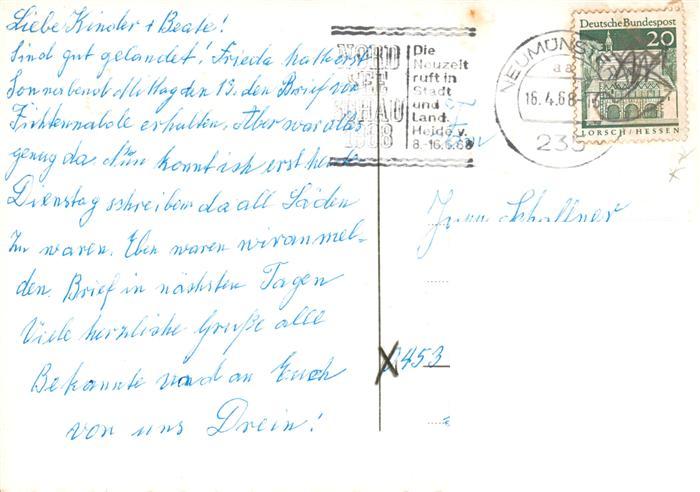 Liebe Kinder + Beate!
Sind gut gelandet! Frieda hatte erst
Sonnabend Mittag den 13. den Brief von
erhalten. Aber war alles
genug da. Nun konnt ich erst heute
Dienstag schreiben da all Läden
zu waren. Eben waren wir anmel-
den. Brief in nächsten Tagen
Viele herzliche Grüße alle
Bekannte und an Euch
von uns Drein!
NORD
SEE
SCHAU
1968
Die
Neuzeit
ruft in
Stadt
und
Land.
Heide v.
8.-16.6.68
NEUMÜNS
aa
16.4.68
235
Deutsche Bundespost
20
LORSCH/HESSEN
Schallner
X 2453